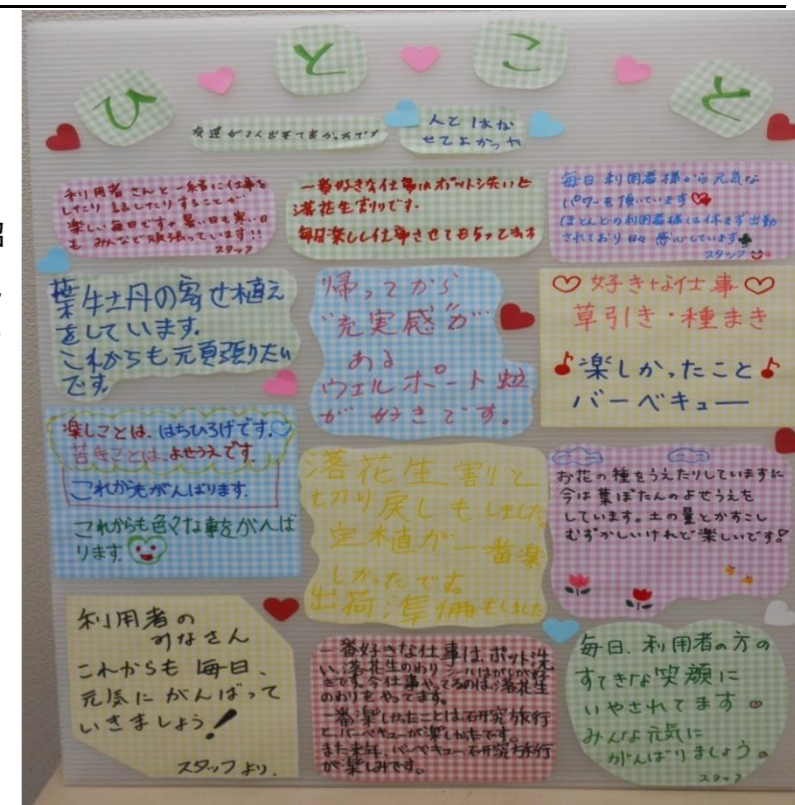 ひとこと
友達が3人出来て良かったです
人とはな
せてよかった
利用者さんと一緒に仕事を
したり 話したりすることが
楽しい毎日ですね 暑い日も寒い日
も みんなで頑張っています!!
スタッフ
一番好きな仕事はポット洗いと
落花生割りです。
毎日楽しし仕事させてもらってます
毎日利用者様から元気な
パワーを頂いています
ほとんどの利用者様は休まず出勤
されており日々感心しています
スタッフ
葉牡丹の寄せ植え
をしています。
これからも元頁張りたい
です。
帰ってから
"充実感"が
ある
ウェルポート
が好きです。
♡好きな仕事♡
草引き・種まき
♪楽しかったこと♪
バーベキュー
楽しことは、はちひろげです。♡
苦きことは、よせうえです。
これからもがんばります。
これからも色々な事をがんば
ります。
落花生割と
切り戻しもしました
定植が一番楽
しかったです。
出荷準備もしました
お花の種をうえたりしていますに
今は葉ぼたんのよせうえを
しています。土の量とかすこし
むずかしいけれど楽しいです!
利用者の
みなさん
これからも毎日、
元気にがんばって
いきましょう!
スタッフより.
一番好きな仕事は、ポット洗
い、落花生のわり、シールはがしが好
きです。今仕事やってるのは、落花生
のわりをやってます。
一番楽しかったことは、研究旅行
と、バーベキューが楽しかたです。
また来年、バーベキュー、研究旅行
が楽しみです。
毎日、利用者の方の
すてきな笑顔に
いやされてます。
みんな元気に
がんばりましょう。
スタッフ